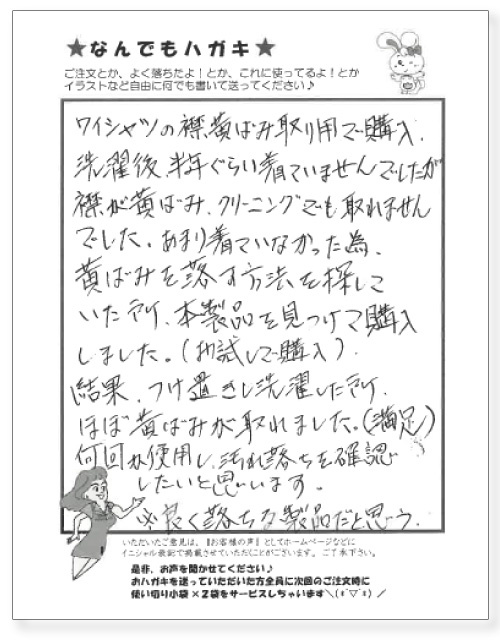 ★なんでもハガキ★
ご注文とか、よく落ちたよ！とか、これに使ってるよ！とか
イラストなど自由に何でも書いて送ってください♪
ワイシャツの襟黄ばみ取り用で購入.
洗濯後、半年ぐらい着ていませんでしたが
襟が黄ばみ、クリーニングでも取れません
でした。あまり着ていなかった為、
黄ばみを落す方法を探して
いた所、本製品を見つけて購入
しました。(お試しで購入).
結果、つけ置きし洗濯した所、
ほぼ黄ばみが取れました。(満足)
何回か使用し、汚れ落ちを確認
したいと思います。
※良く落ちる製品だと思う.
いただいたご意見は、『お客様の声』としてホームページなどに
イニシャル表記で掲載させていただくことがございます。ご了承下さい。
是非、お声を聞かせてください♪
おハガキを送っていただいた方全員に次回のご注文時に
使い切り小袋×2袋をサービスしちゃいます＼(*´▽`*)／